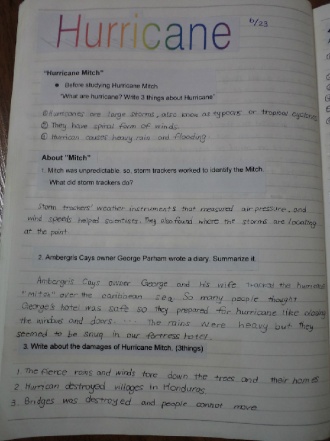 Hurricane
6/23
"Hurricane Mitch"
Before studying Hurricane Mitch
"What are hurricane? Write 3 things about Hurricane"
① Hurricanes are large storms, also know as typoons or tropical cyclone.
② They have spiral form of winds
③ Hurrican causes heavy rain and flooding.
About "Mitch"
1. Mitch was unpredictable, so, storm trackers worked to identify the Mitch.
What did storm trackers do?
Storm trackers' weather instruments that measured air pressure, and
wind speeds helped scientists. They also found where the storms are locating
at the point.
2. Ambergris Cays owner George Parham wrote a diary. Summarize it.
Ambergris Cays owner George and his wife the hurricane
"mitch" over the caribbean sea. So many people thought
George's hotel was safe so they prepared for hurricane like closing
the windows and doors. The rains were heavy but they
seemed to be okay in our fortress hotel.
3. Write about the damages of Hurricane Mitch. (3things)
1 The fierce rains and winds tore down the trees and their homes
2 Hurrican destroyed villages in Honduras
3 Bridges was destroyed and people cannot move.